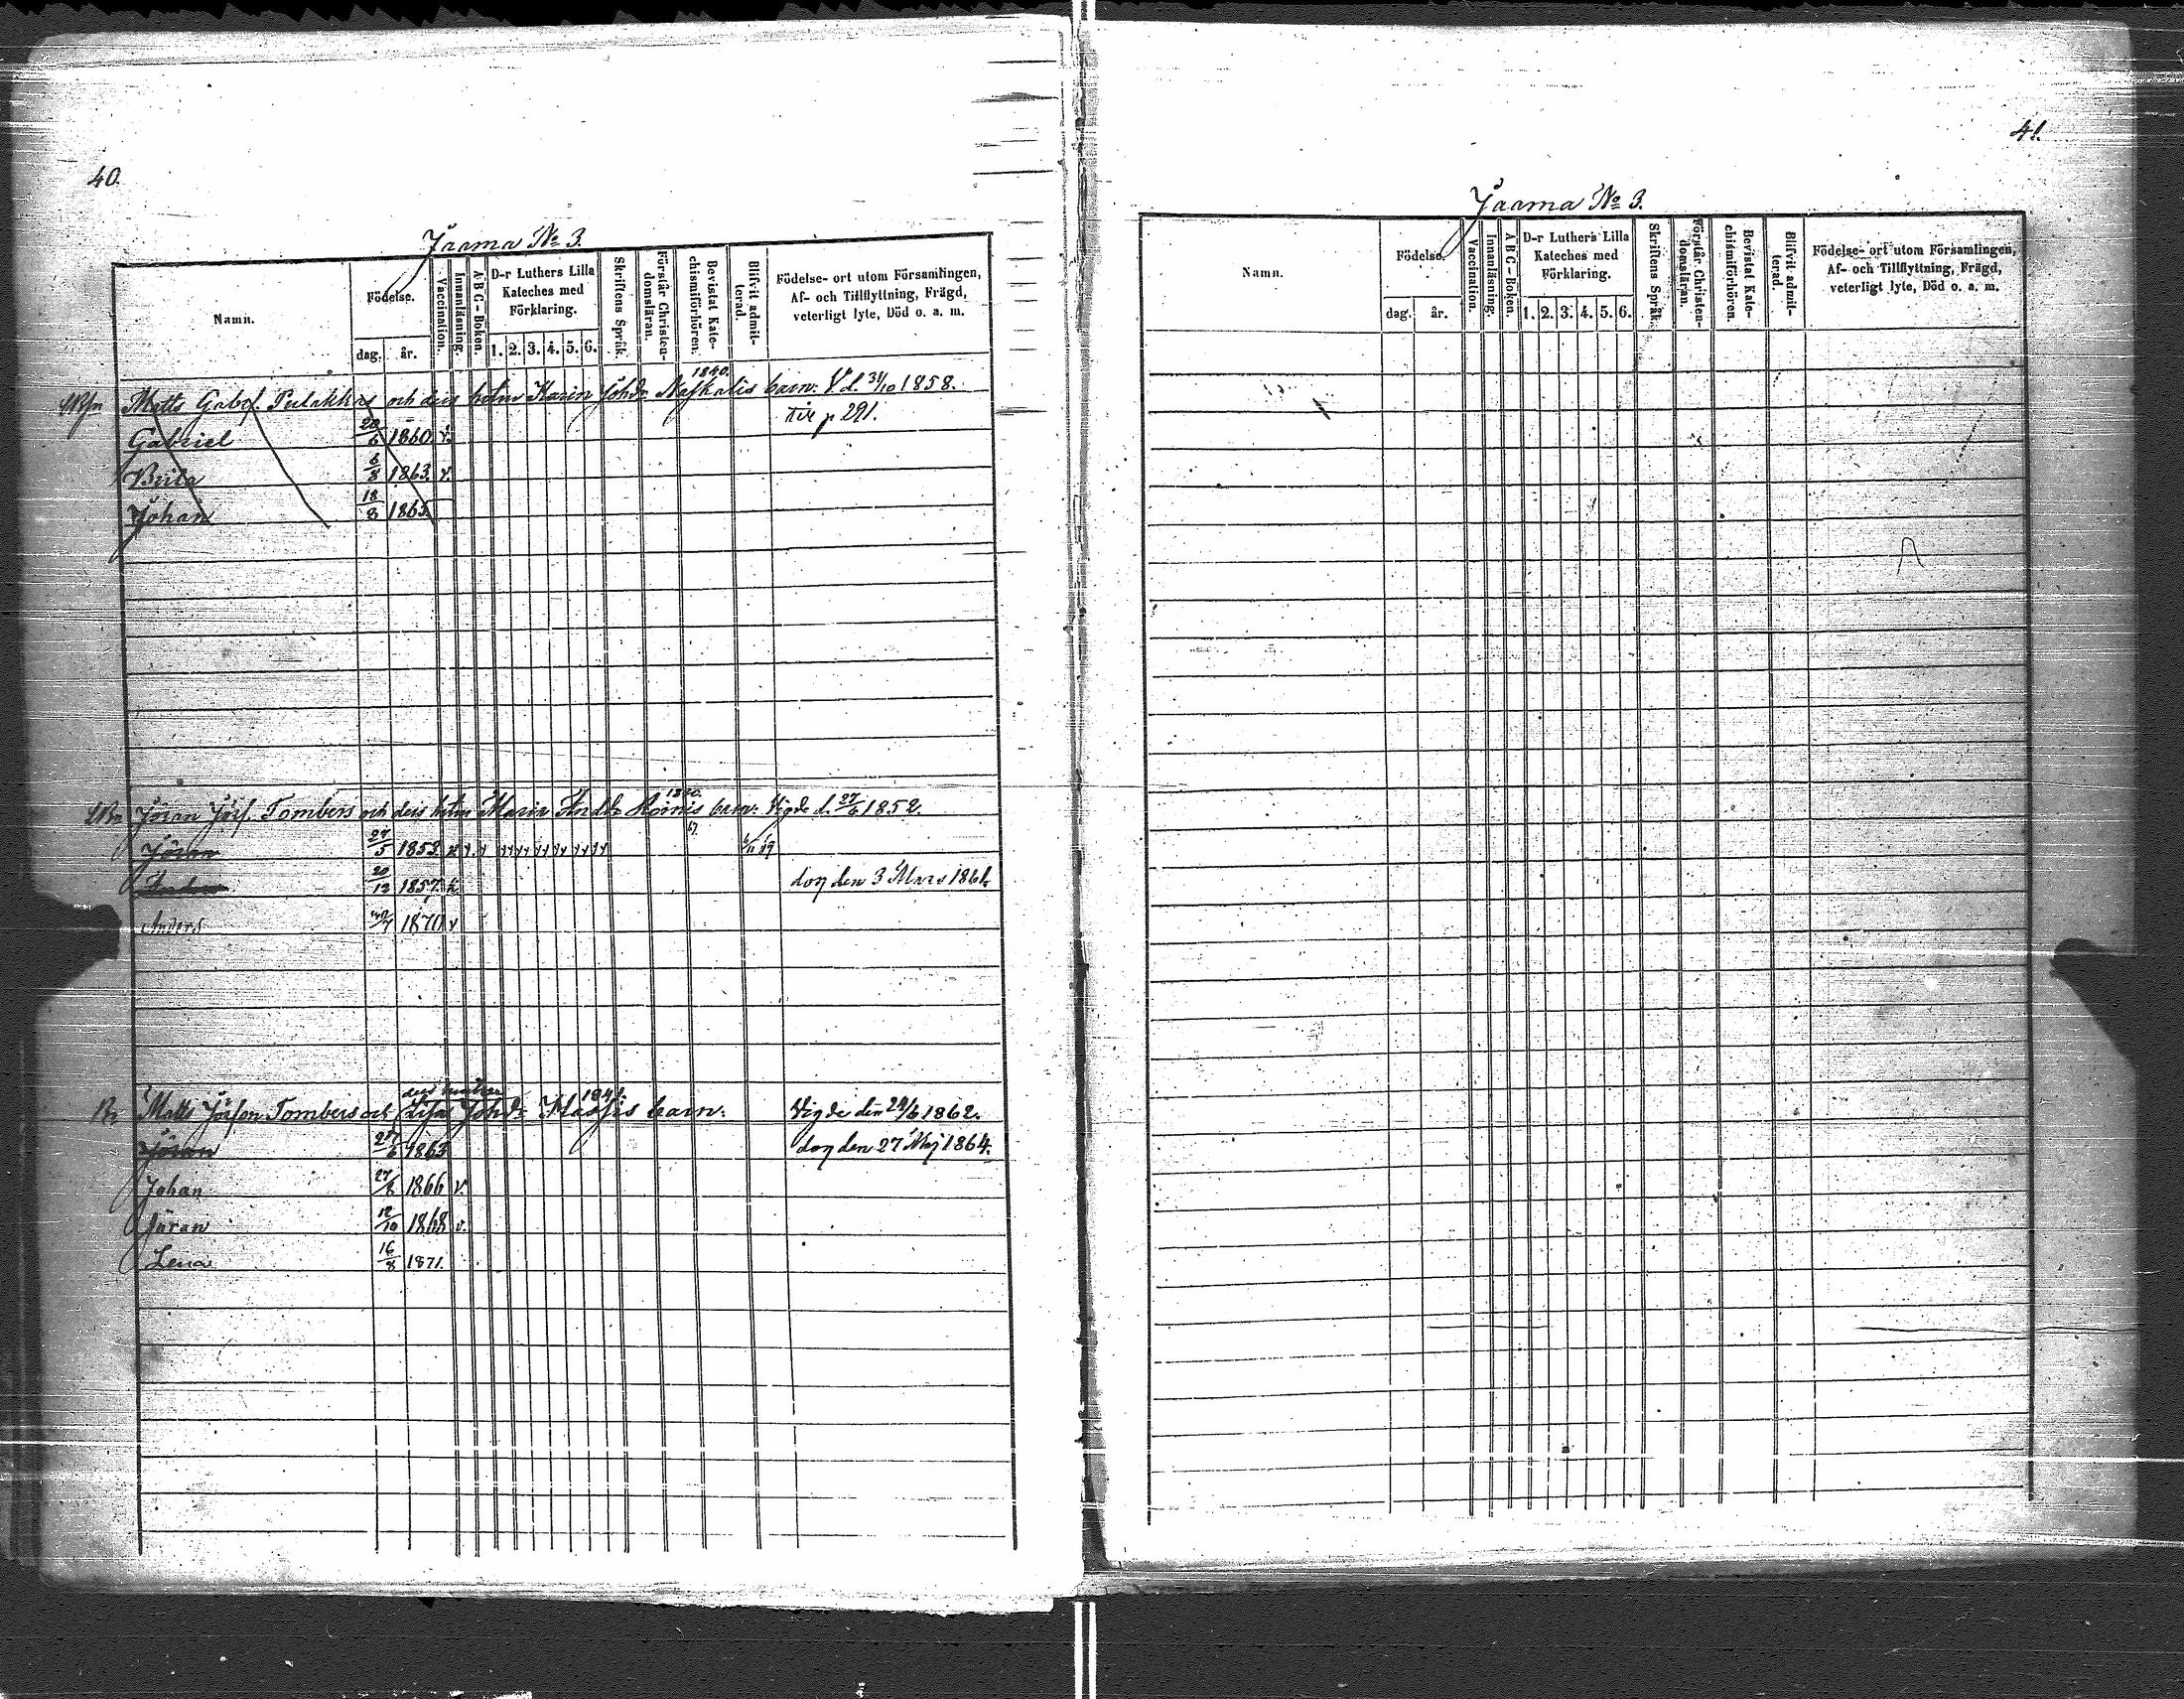 40.
Jaama № 3.
Namn.
Födelse.
dag.
år.
Vaccination.
Innanläsning.
A B C - Boken.
D-r Luthers Lilla
Kateches med
Förklaring.
1. 2. 3. 4. 5. 6.
Skriftens Språk.
Förstår Christen-
domsläran.
Bevistat Kate-
chismiförhören.
Blifvit admit-
terad.
Födelse- ort utom Församlingen,
Af- och Tillflyttning, Frägd,
veterligt lyte, Död o. a. m.
1840.
Matts Gabrs. och dess Karin Johdr barn: V. d. 31/10 1858.
Gabriel 20/6 1860. v. p 291.
Brita 6/8 1863. v.
Johan 18/8 1865.
Jöran Jörs. Tombers och dess Maria Andr. barn: Vigde d. 27/6 1852.
67.
Jöran 27/5 1853.
20/12 1857. dog den 3 Mars 1861.
Anders 1870 v
dess hustru 1841.
Matts Jörson Tombers och Lisa Johdr barn. Vigde den 24/6 1862.
Jöran 1863 dog den 27 Maj 1864.
Johan 27/8 1866 v.
Jöran 12/10 1868 v.
Lena 16/8 1871.
41.
Jaama № 3.
Namn.
Födelse.
dag.
år.
Vaccination.
Innanläsning.
A B C - Boken.
D-r Luthers Lilla
Kateches med
Förklaring.
1. 2. 3. 4. 5. 6.
Skriftens Språk.
Förstår Christen-
domsläran.
Bevistat Kate-
chismiförhören.
Blifvit admit-
terad.
Födelse- ort utom Församlingen,
Af- och Tillflyttning, Frägd,
veterligt lyte, Död o. a. m.